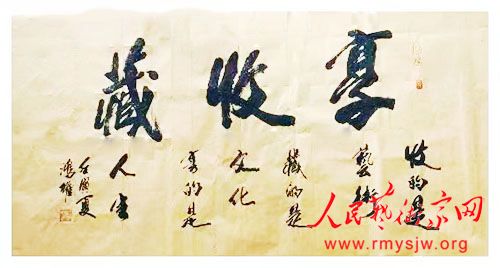 享收藏
收的是
藝術
藏的是
文化
享的是
人生
壬寅夏
人民藝術家网
www.rmysjw.org